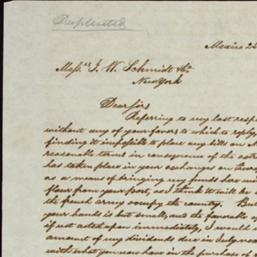 Duplicated
Mexico 2
Mess.rs J. W. Schmidt & Co.
New York
Dear Sirs
Referring to my last resp
without any of your favors to which to reply
finding it impossible to place any bills on N
reasonable terms in consequence of the
has taken place in your exchanges on
as a means of bringing my funds has
flour from your port, as I think it will be
the french army occupy the country. But
your hands is but small, and the favorable
if not acted upon immediately, I would
amount of my dividends due in July next
with what you now have in the purchase of